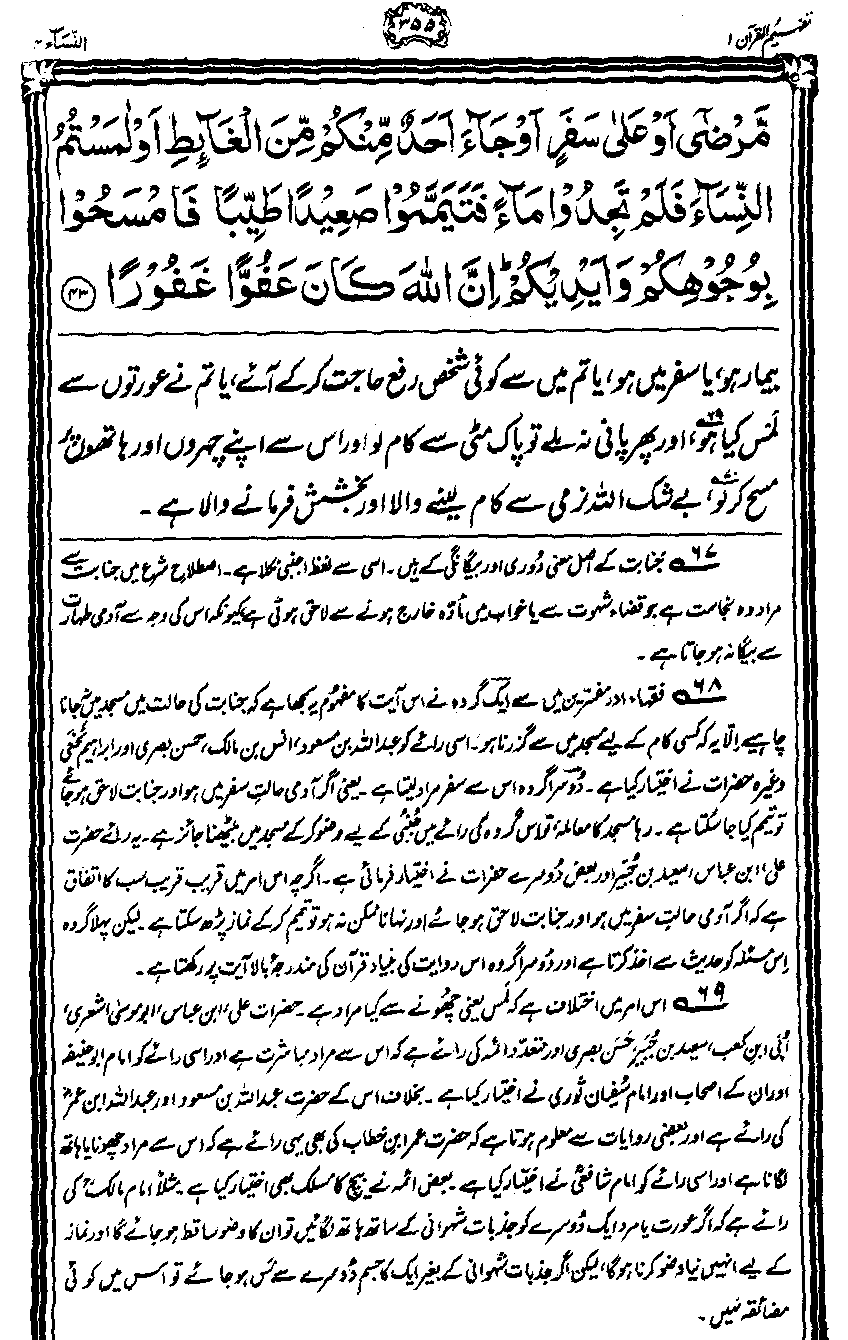 تفہیم القرآن ۱
۳۵۵
النسآء ۴
مَّرْضٰٓى اَوْ عَلٰى سَفَرٍ اَوْ جَآءَ اَحَدٌ مِّنْكُمْ مِّنَ الْغَآئِطِ اَوْ لٰمَسْتُمُ
النِّسَآءَ فَلَمْ تَجِدُوْا مَآءً فَتَيَمَّمُوْا صَعِيْدًا طَيِّبًا فَامْسَحُوْا
بِوُجُوْهِكُمْ وَاَيْدِيْكُمْ ؕ اِنَّ اللّٰهَ كَانَ عَفُوًّا غَفُوْرًا ﴿۴۳﴾
بیمار ہو، یا سفر میں ہو، یا تم میں سے کوئی شخص رفع حاجت کر کے آئے، یا تم نے عورتوں سے
لَمس کیا ہو۶۹، اور پھر پانی نہ ملے تو پاک مٹی سے کام لو اور اس سے اپنے چہروں اور ہاتھوں پر
مسح کر لو۷۰، بے شک اللہ نرمی سے کام لینے والا اور بخشش فرمانے والا ہے۔
۶۷ جَنابت کے اصل معنی دُوری اور بیگانگی کے ہیں۔ اسی سے لفظ اجنبی نکلا ہے۔ اصطلاحِ شرع میں جنابت سے
مراد وہ نجاست ہے جو قضاء شہوت سے یا خواب میں مادّہ خارج ہونے سے لاحق ہوتی ہے کیونکہ اس کی وجہ سے آدمی طہارت
سے بیگانہ ہو جاتا ہے۔
۶۸ فقہاء اور مفسّرین میں سے ایک گروہ نے اس آیت کا مفہوم یہ سمجھا ہے کہ جنابت کی حالت میں مسجد میں نہ جانا
چاہیے اِلّا یہ کہ کسی کام کے لیے مسجد میں سے گزرنا ہو۔ اسی رائے کو عبداللہ بن مسعود، انس بن مالک، حسن بصری اور ابراہیم نَخَعی
وغیرہ حضرات نے اختیار کیا ہے۔ دُوسرا گروہ اس سے سفر مراد لیتا ہے۔ یعنی اگر آدمی حالتِ سفر میں ہو اور جنابت لاحق ہو جائے
تو تیمم کیا جا سکتا ہے۔ رہا مسجد کا معاملہ، تو اس گروہ کی رائے میں جُنبی کے لیے وضو کر کے مسجد میں بیٹھنا جائز ہے۔ یہ رائے حضرت
علی، ابن عباس، سعید بن جُبَیر اور بعض دُوسرے حضرات نے اختیار فرمائی ہے۔ اگرچہ اس امر میں قریب قریب سب کا اتفاق
ہے کہ اگر آدمی حالتِ سفر میں ہو اور جنابت لاحق ہو جائے اور نہانا ممکن نہ ہو تو تیمم کر کے نماز پڑھ سکتا ہے۔ لیکن پہلا گروہ
اِس مسئلہ کو حدیث سے اخذ کرتا ہے اور دُوسرا گروہ اس روایت کی بنیاد قرآن کی مندرجۂ بالا آیت پر رکھتا ہے۔
۶۹ اس امر میں اختلاف ہے کہ لَمس یعنی چھُونے سے کیا مراد ہے۔ حضرات علی، ابن عباس، ابو موسیٰ اشعری،
اُبَیّ ابن کعب، سعید بن جُبَیر، حَسَن بصری اور متعدّد ائمہ کی رائے ہے کہ اس سے مراد مباشرت ہے اور اسی رائے کو امام ابو حنیفہ
اور ان کے اصحاب اور امام سُفیان ثوری نے اختیار کیا ہے۔ بخلاف اس کے حضرت عبداللہ بن مسعود اور عبداللہ ابن عمرؓ
کی رائے ہے اور بعض روایات سے معلوم ہوتا ہے کہ حضرت عمر ابن خطاب کی بھی یہی رائے ہے کہ اس سے مراد چھونا یا ہاتھ
لگانا ہے اور اسی رائے کو امام شافعیؒ نے اختیار کیا ہے۔ بعض ائمہ نے بیچ کا مسلک بھی اختیار کیا ہے۔ مثلاً امام مالکؒ کی
رائے ہے کہ اگر عورت یا مرد ایک دُوسرے کو جذبات شہوانی کے ساتھ ہاتھ لگائیں تو ان کا وضو ساقط ہو جائے گا اور نماز
کے لیے انہیں نیا وضو کرنا ہوگا، لیکن اگر جذبات شہوانی کے بغیر ایک کا جسم دُوسرے سے مَس ہو جائے تو اس میں کوئی
مضائقہ نہیں۔